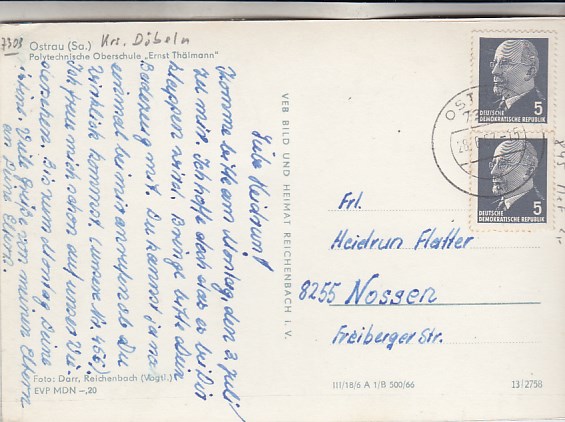 7303
Krs. Döbeln
Ostrau (Sa.)
Polytechnische Oberschule „Ernst Thälmann"
Liebe Heidrun!
Komme bitte am Montag, den 3. Juli
zu mir. Ich hoffe doch das es bei Dir
klappen wird. Bringe bitte Dein
mit. Du kannst ja noch
einmal bei mir anrufen ob Du
wirklich kommst. (unsere Nr. 456)
Ich freue mich schon auf unser Wie-
dersehen. Bis zum Montag Deine
Viele Grüße von meinen Eltern
an Deine Eltern.
VEB BILD UND HEIMAT REICHENBACH I. V.
Foto: Darr, Reichenbach (Vogtl.)
EVP MDN –,20
DEUTSCHE
DEMOKRATISCHE REPUBLIK
5
DEUTSCHE
DEMOKRATISCHE REPUBLIK
5
OST
Frl.
Heidrun Flatter
8255 Nossen
Freiberger Str.
III/18/6 A 1/B 500/66
13/2758